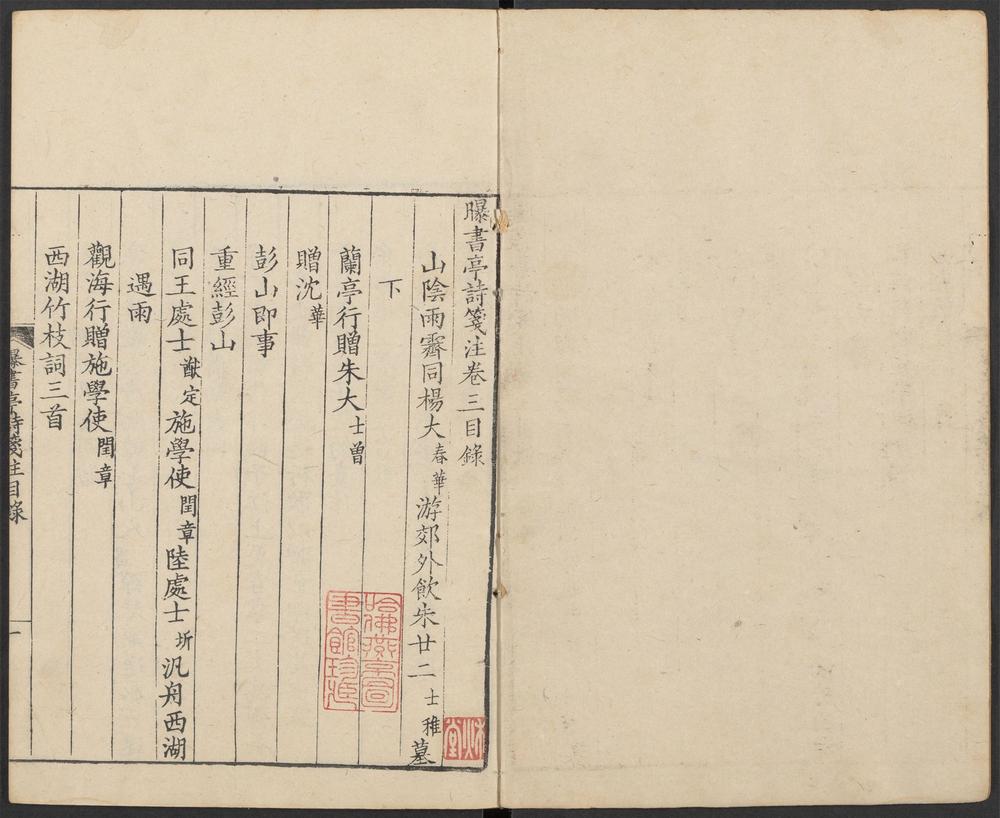 曝書亭詩箋注卷三目錄
山陰雨霽同楊大春華游郊外飲朱廿二士稚墓
下
蘭亭行贈朱大士曾
贈沈華
彭山即事
重經彭山
同王處士猷定施學使閏章陸處士圻汎舟西湖
遇雨
觀海行贈施學使閏章
西湖竹枝詞三首
曝書亭詩箋注目錄
一
哈佛燕京圖
書館珍藏